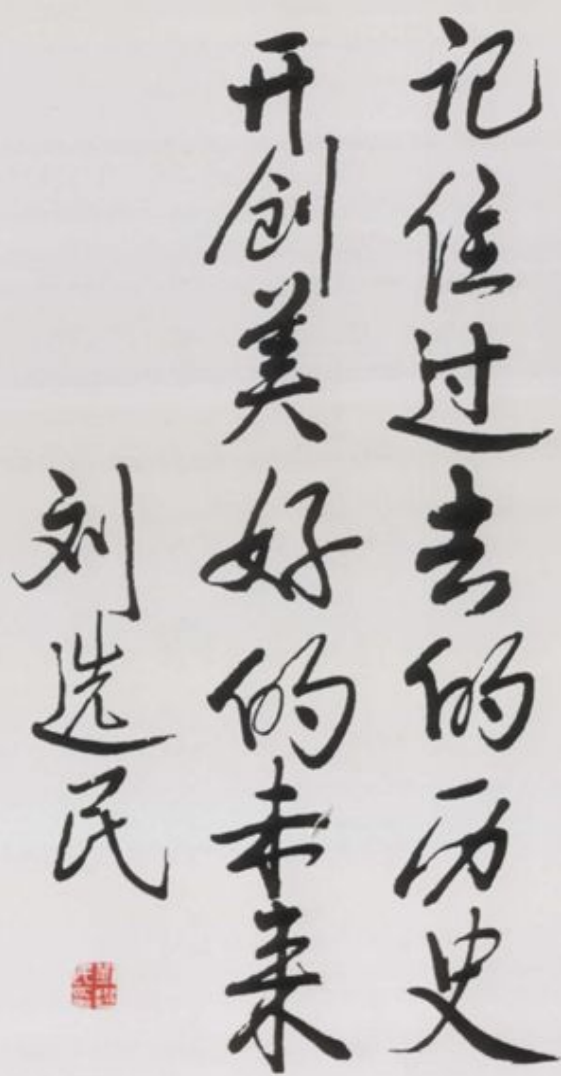 记住过去的历史
开创美好的未来
刘选民